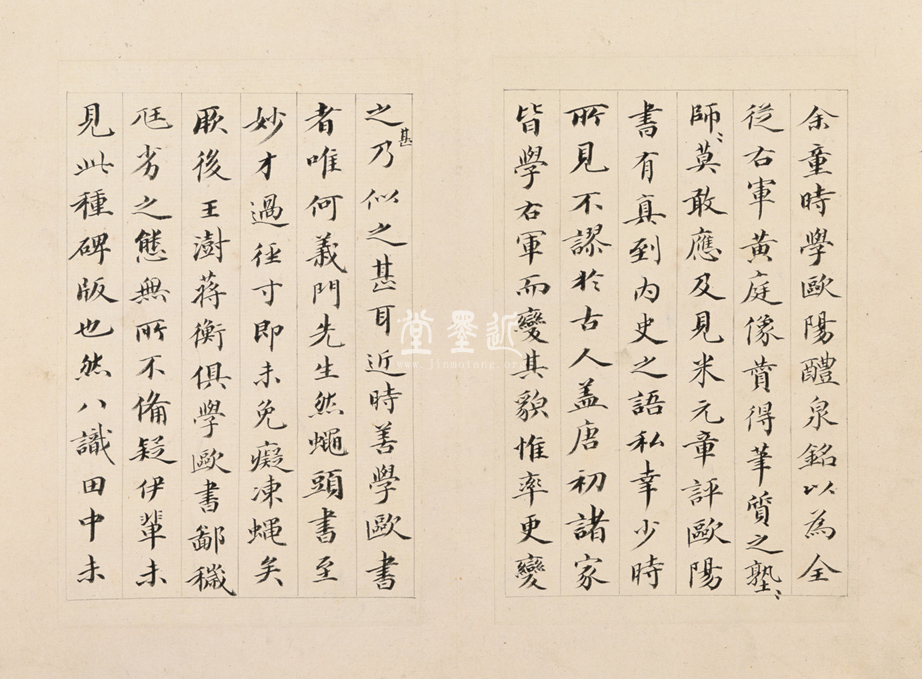 余童時學歐陽醴泉銘以為全
從右軍黃庭像賛得筆質之塾〻
師〻莫敢應及見米元章評歐陽
書有真到内史之語私幸少時
所見不謬於古人盖唐初諸家
皆學右軍而變其貌惟率更變
之甚乃似之甚耳近時善學歐書
者唯何義門先生然蠅頭書至
妙才過徑寸即未免癡凍蝇矣
厥後王澍蒋衡俱學歐書鄙穢
尫劣之態無所不備疑伊輩未
見此種碑版也然八識田中未
近墨堂
www.jinmotang.org